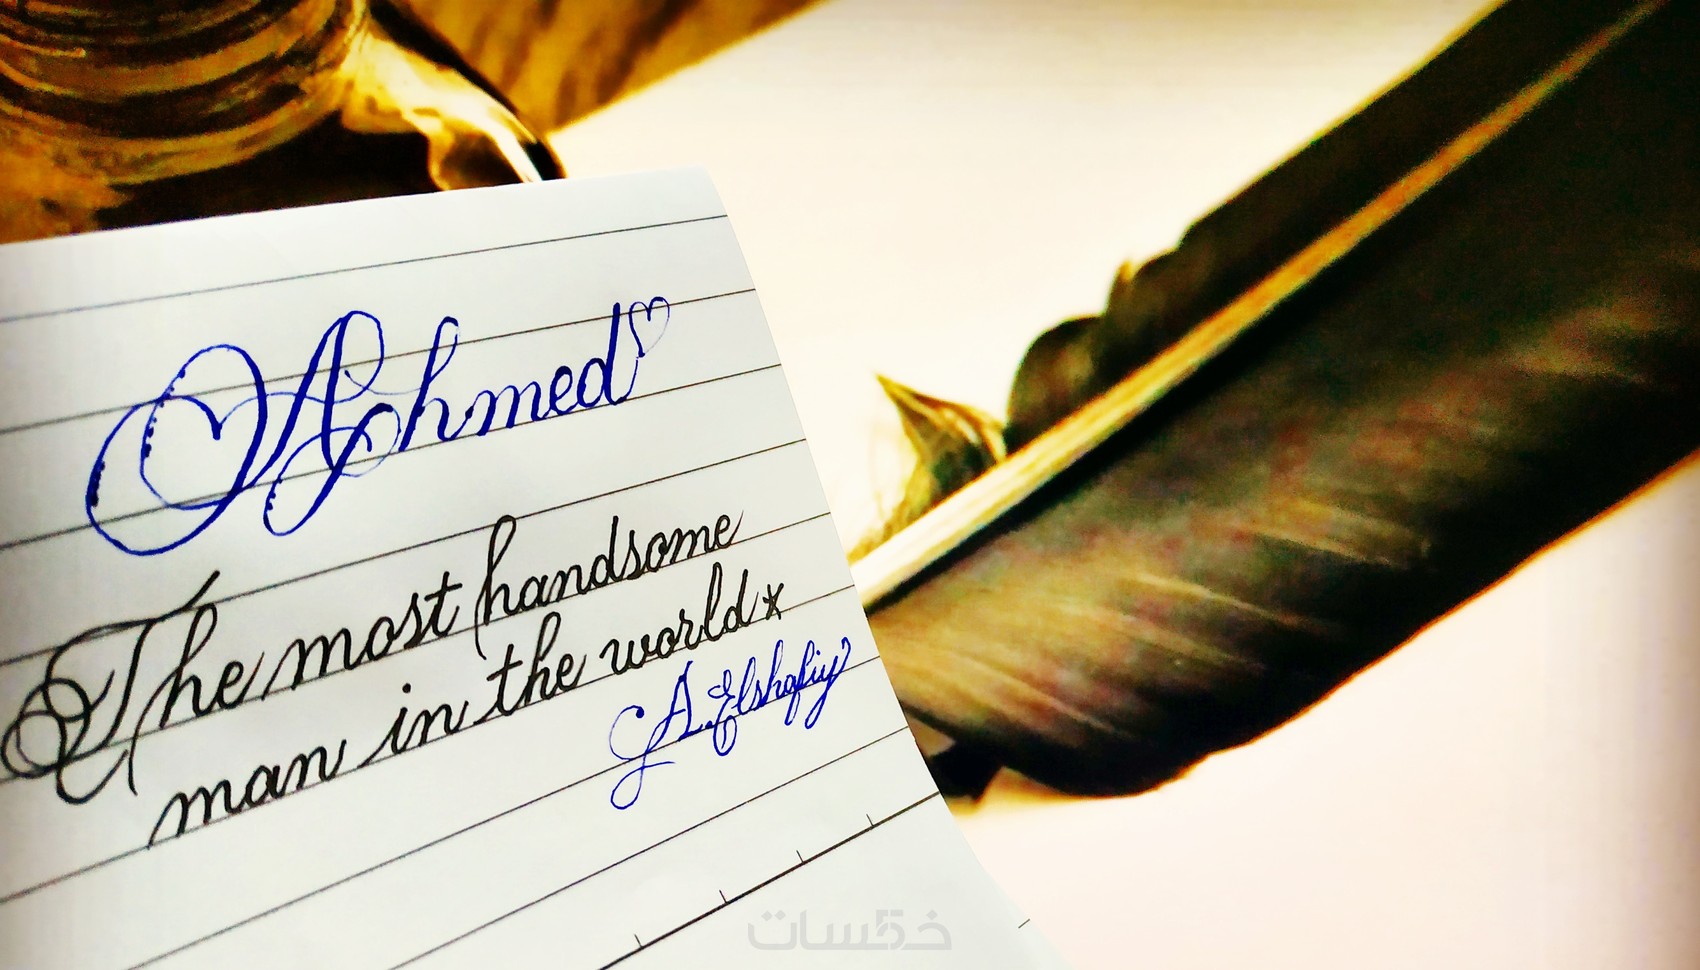 Ahmed
The most handsome
man in the world*
A.Elshafiy
خمسات